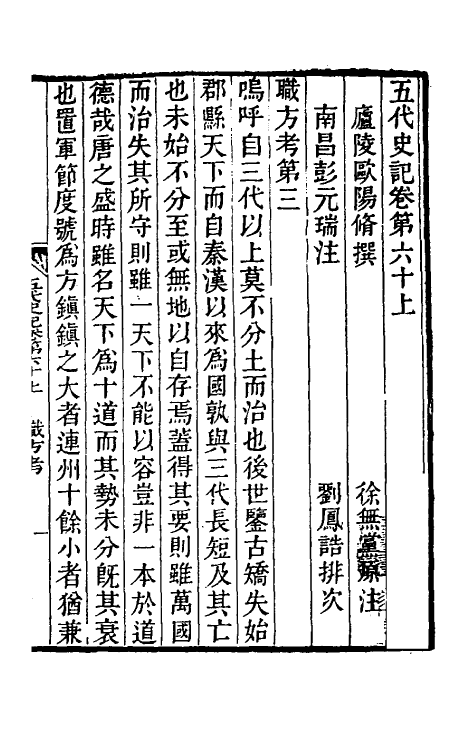 五代史記卷第六十上
廬陵歐陽脩撰　徐無黨原注
南昌彭元瑞注　劉鳳誥排次
職方考第三
嗚呼自三代以上莫不分土而治也後世鑒古矯失始
郡縣天下而自秦漢以來為國孰與三代長短及其亡
也未始不分至或無地以自存焉蓋得其要則雖萬國
而治失其所守則雖一天下不能以容豈非一本於道
德哉唐之盛時雖名天下為十道而其勢未分旣其衰
也置軍節度號為方鎮鎮之大者連州十餘小者猶兼
五代史記卷第六十上　職方考　一